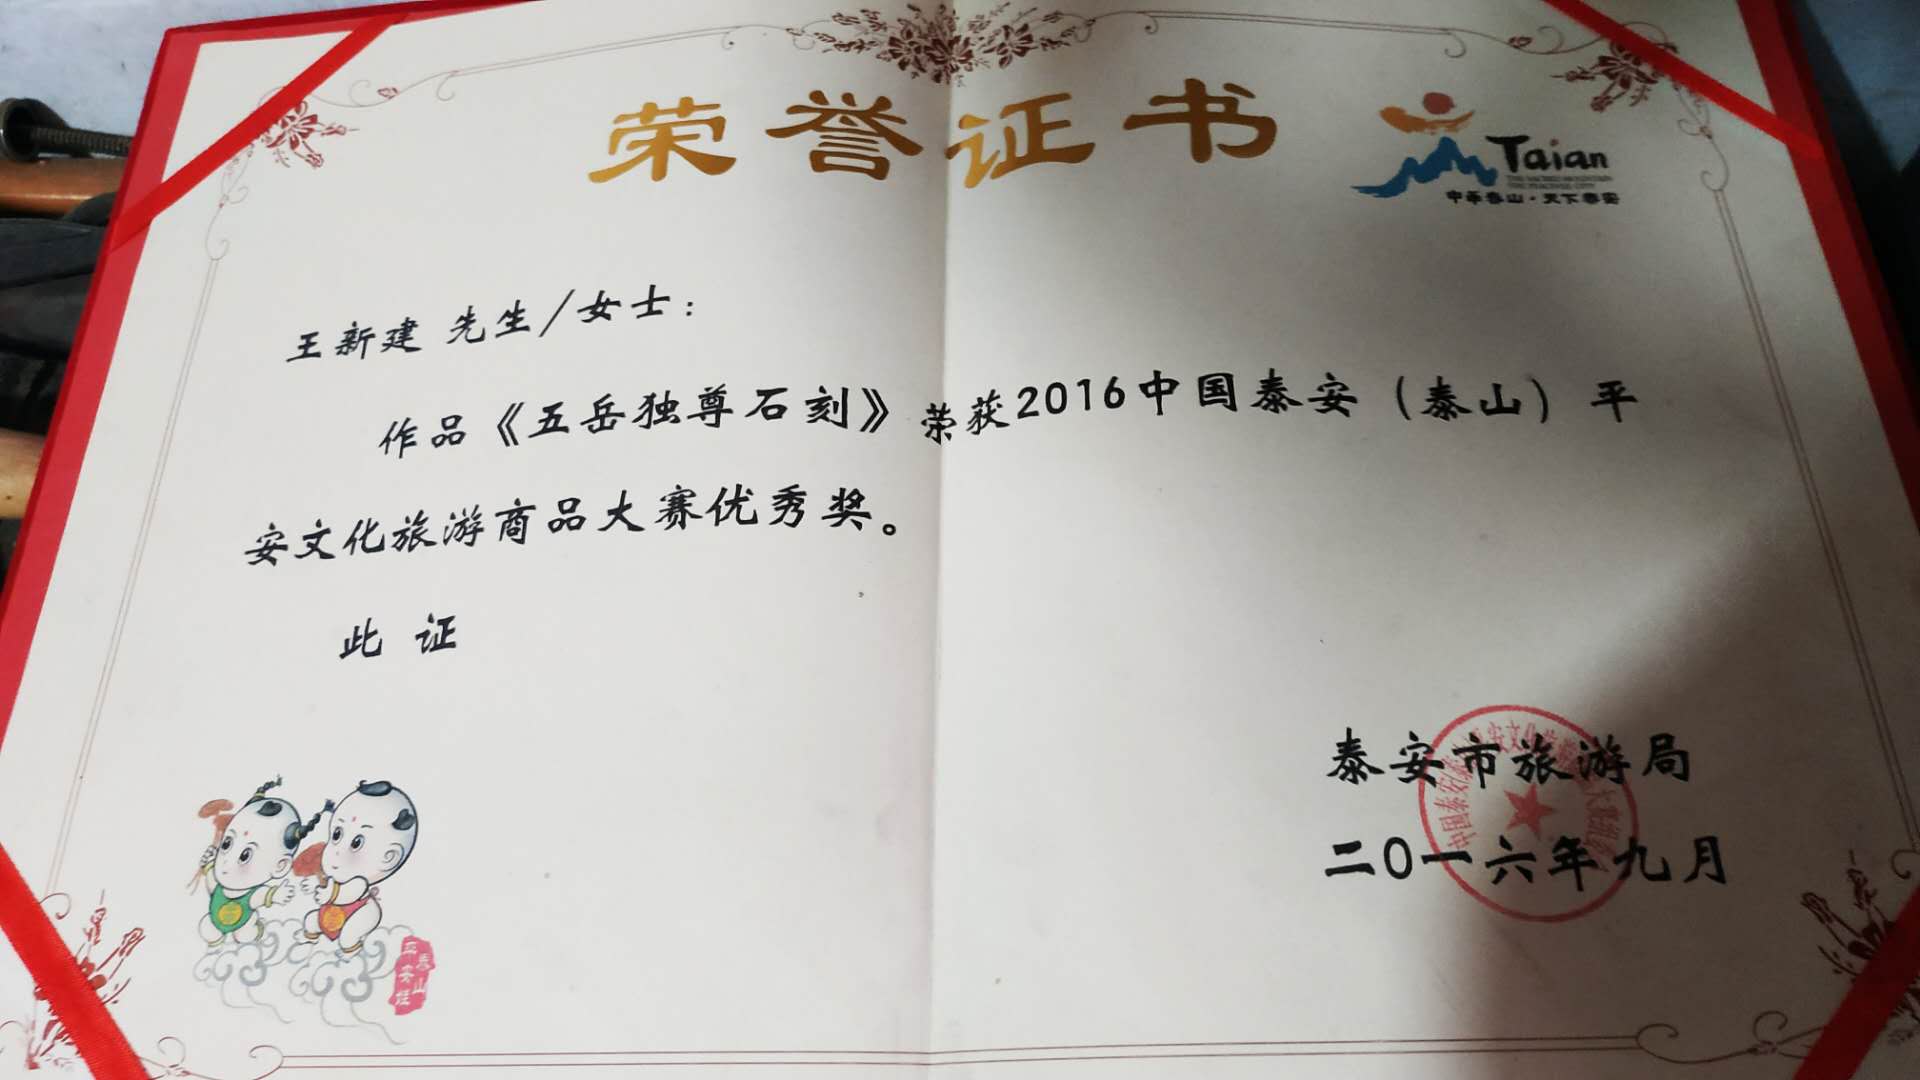 荣誉证书
Taian
THE SACRED MOUNTAIN
THE PEACEFUL CITY
中华泰山·天下泰安
王新建 先生/女士：
作品《五岳独尊石刻》荣获2016中国泰安（泰山）平
安文化旅游商品大赛优秀奖。
此 证
泰安市旅游局
二〇一六年九月
泰山
平安娃